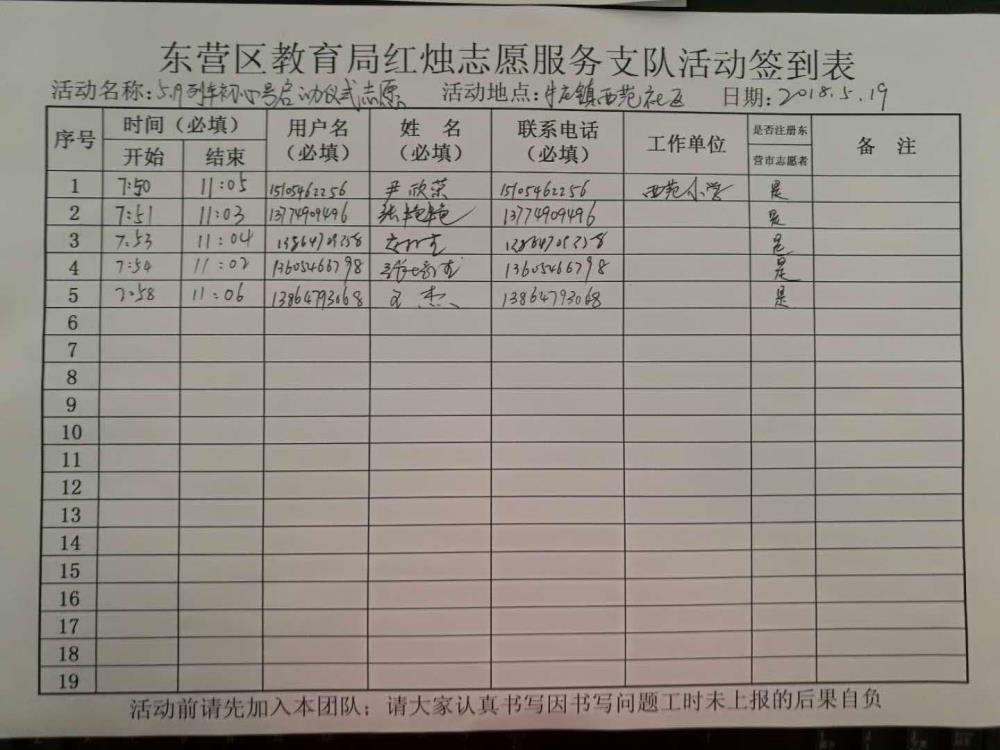 东营区教育局红烛志愿服务支队活动签到表
活动名称:5月列车初心号启动仪式志愿 活动地点:牛庄镇西苑社区 日期:2018.5.19
序号 时间（必填） 用户名（必填） 姓 名（必填） 联系电话（必填） 工作单位 是否注册东营市志愿者 备 注
开始 结束
1 7:50 11:05 15105462256 尹欣荣 15105462256 西苑小学 是
2 7:51 11:03 13774909496 张艳艳 13774909496 是
3 7:53 11:04 13864709258 13864709258 是
4 7:54 11:02 13605466798 13605466798 是
5 7:58 11:06 13864793068 王杰 13864793068 是
6
7
8
9
10
11
12
13
14
15
16
17
18
19
活动前请先加入本团队；请大家认真书写因书写问题工时未上报的后果自负